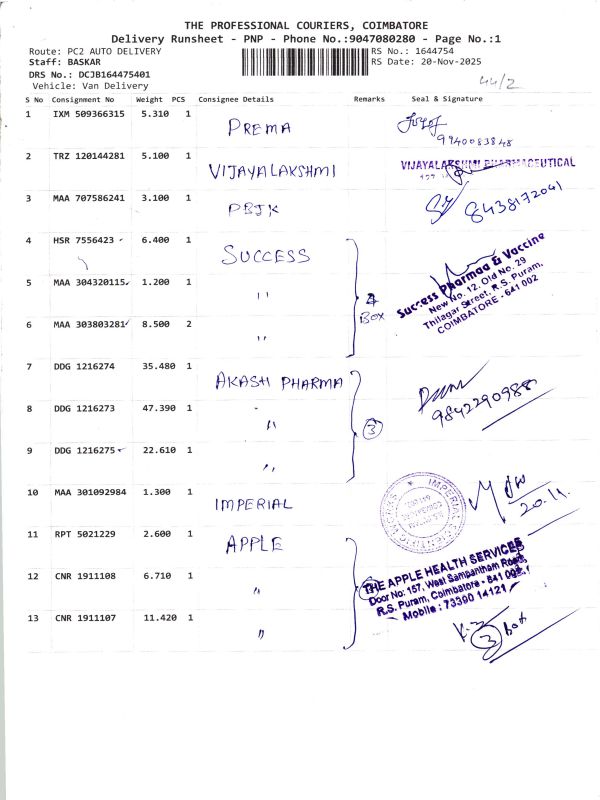 THE PROFESSIONAL COURIERS, COIMBATORE
Delivery Runsheet - PNP - Phone No.:9047080280 - Page No.:1
Route: PC2 AUTO DELIVERY
RS No.: 1644754
Staff: BASKAR
RS Date: 20-Nov-2025
DRS No.: DCJB164475401
44/2
Vehicle: Van Delivery
S No Consignment No Weight PCS Consignee Details Remarks Seal & Signature
1 IXM 509366315 5.310 1 PREMA
9940083848
2 TRZ 120144281 5.100 1 VIJAYALAKSHMI VIJAYALAKSHMI PHARMACEUTICAL
3 MAA 707586241 3.100 1 PBJK 8438172041
4 HSR 7556423 6.400 1 SUCCESS
Success Pharmaa & Vaccine
New No. 12, Old No. 29
Thilagar Street, R.S. Puram,
COIMBATORE - 641 002
5 MAA 304320115 1.200 1 "
4 BOX
6 MAA 303803281 8.500 2 "
7 DDG 1216274 35.480 1 AKASH PHARMA
8 DDG 1216273 47.390 1 "
3
9 DDG 1216275 22.610 1 "
10 MAA 301092984 1.300 1 IMPERIAL
20.11.
11 RPT 5021229 2.600 1 APPLE
12 CNR 1911108 6.710 1 "
THE APPLE HEALTH SERVICES
Door No: 157, West Sampantham Road,
R.S. Puram, Coimbatore - 641 002.
Mobile : 73390 14121
13 CNR 1911107 11.420 1 "
3 box